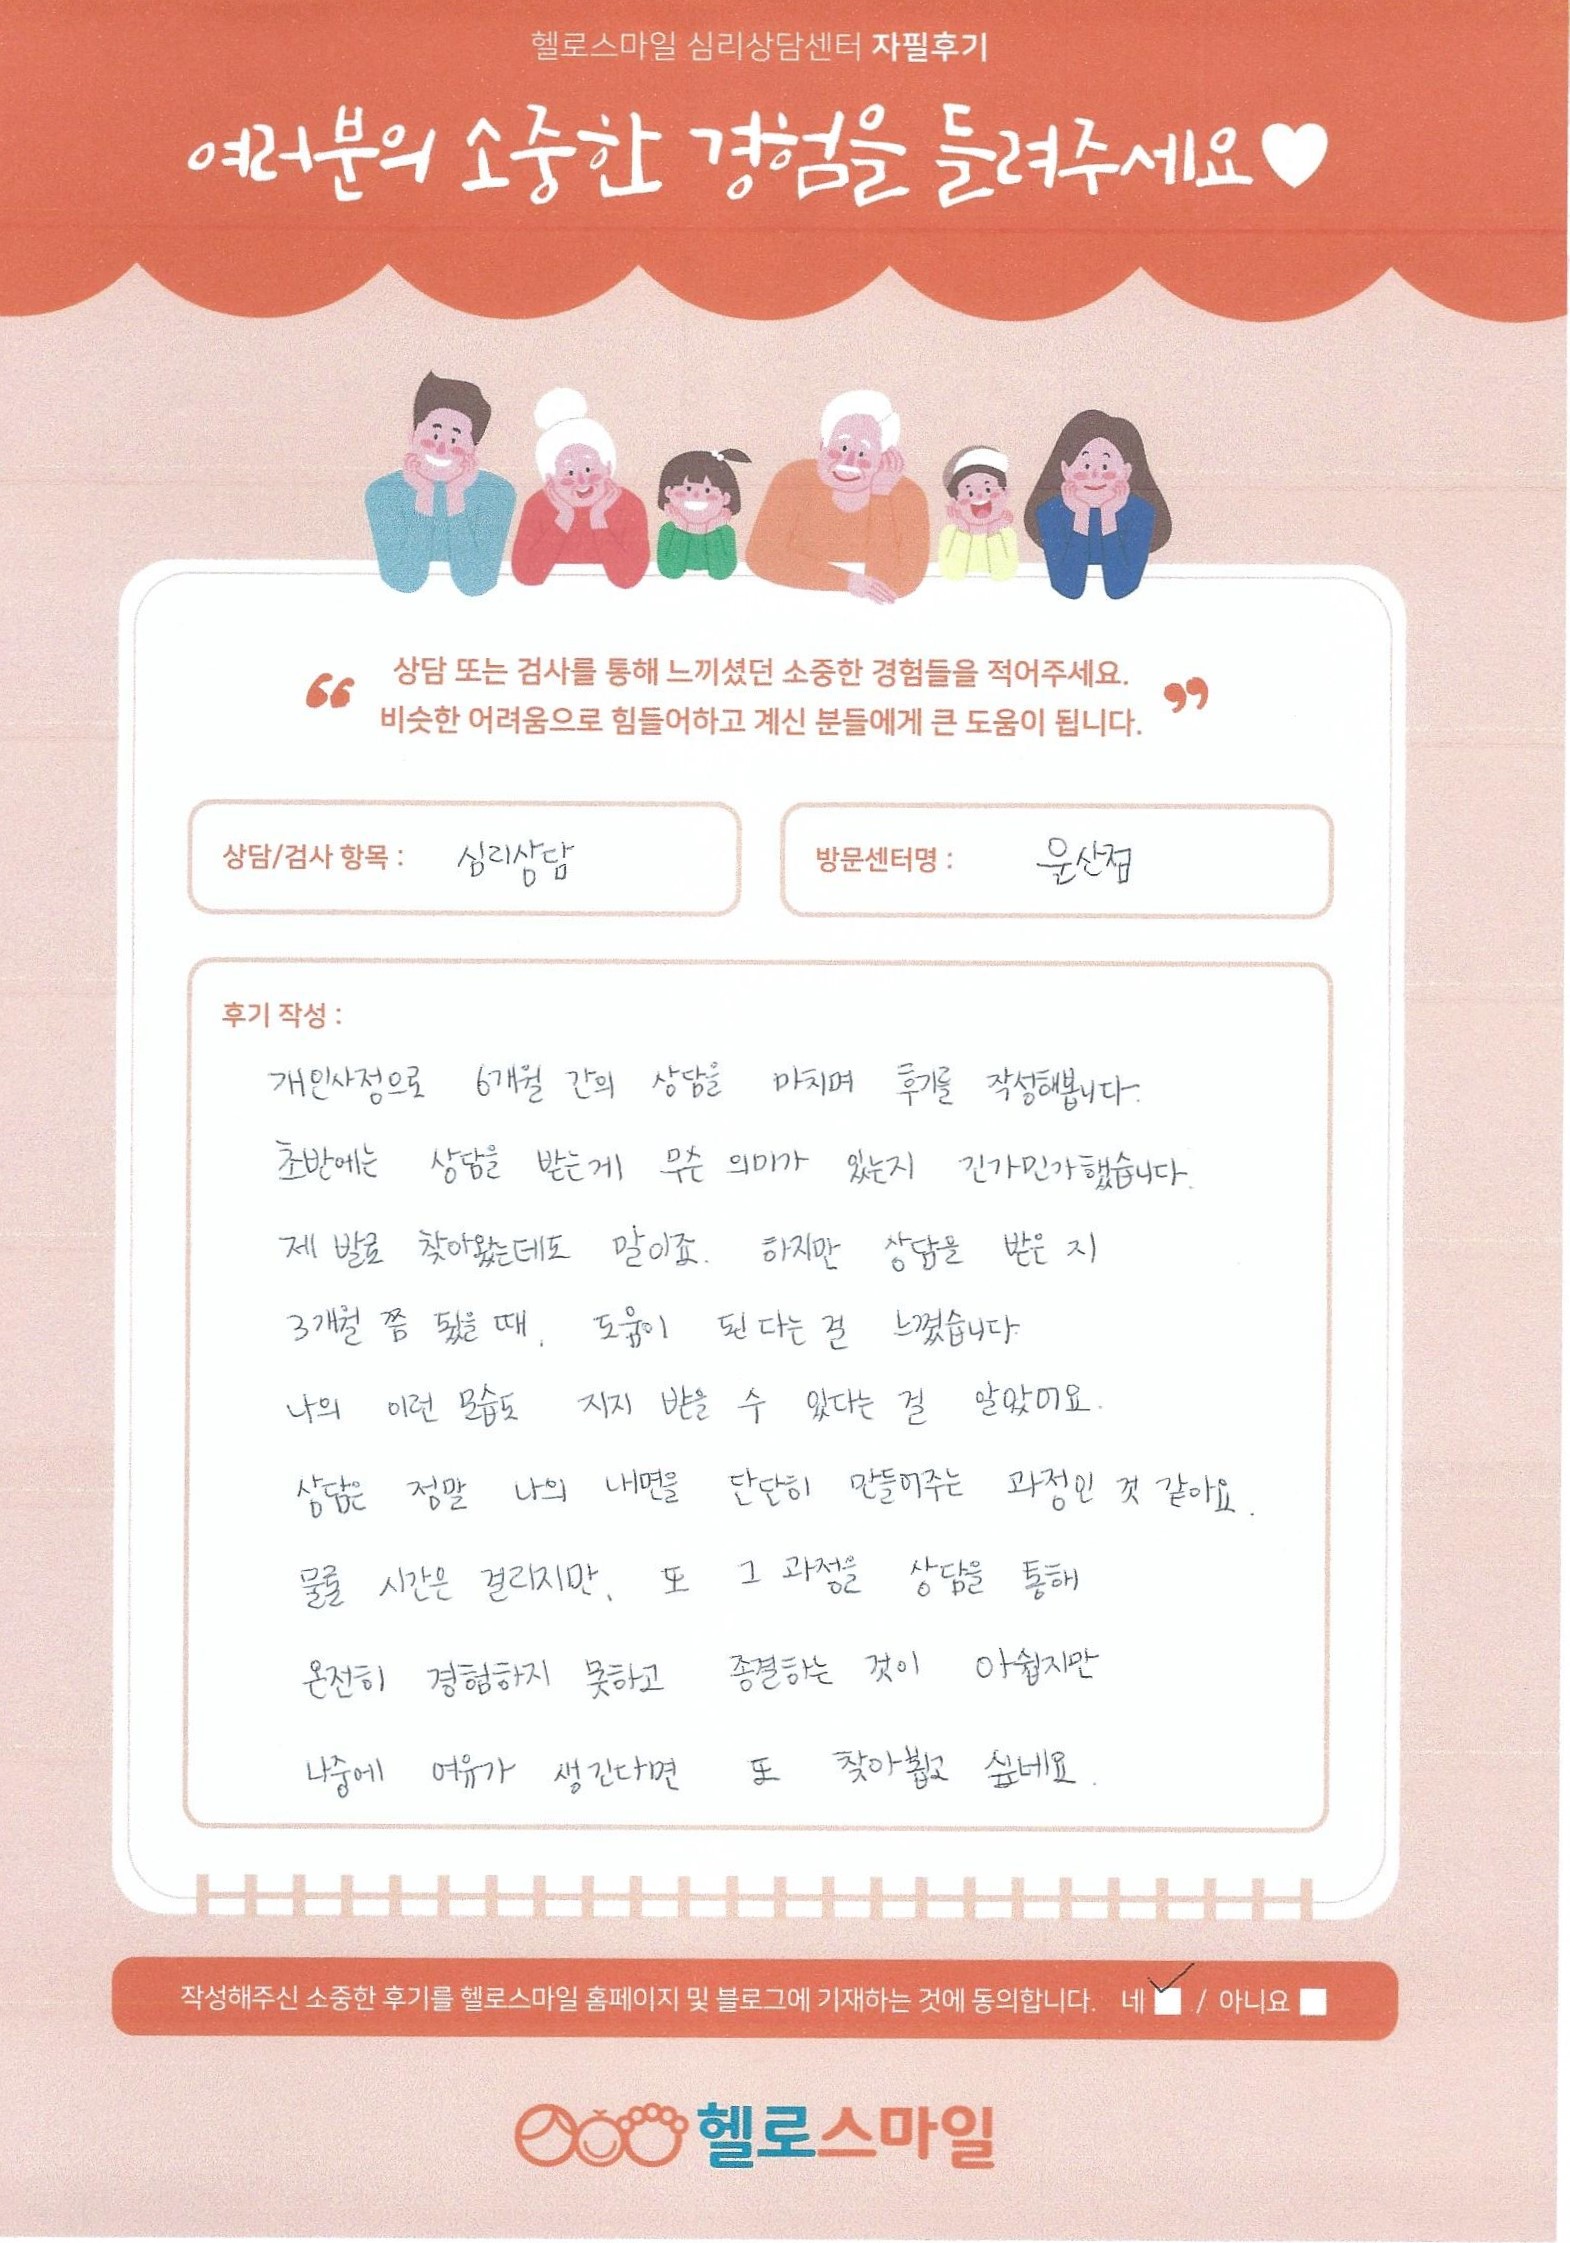 헬로스마일 심리상담센터 자필후기
여러분의 소중한 경험을 들려주세요♥
“ 상담 또는 검사를 통해 느끼셨던 소중한 경험들을 적어주세요. ”
비슷한 어려움으로 힘들어하고 계신 분들에게 큰 도움이 됩니다.
상담/검사 항목 : 심리상담
방문센터명 : 울산점
후기 작성 :
개인사정으로 6개월 간의 상담을 마치며 후기를 작성해봅니다.
초반에는 상담을 받는게 무슨 의미가 있는지 긴가민가했습니다.
제 발로 찾아왔는데도 말이죠. 하지만 상담을 받은 지
3개월 쯤 됐을 때, 도움이 된다는 걸 느꼈습니다.
나의 이런 모습도 지지 받을 수 있다는 걸 알았어요.
상담은 정말 나의 내면을 단단히 만들어주는 과정인 것 같아요.
물론 시간은 걸리지만, 또 그 과정을 상담을 통해
온전히 경험하지 못하고 종결하는 것이 아쉽지만
나중에 여유가 생긴다면 또 찾아뵙고 싶네요.
작성해주신 소중한 후기를 헬로스마일 홈페이지 및 블로그에 기재하는 것에 동의합니다. 네 ✓ / 아니요
헬로스마일